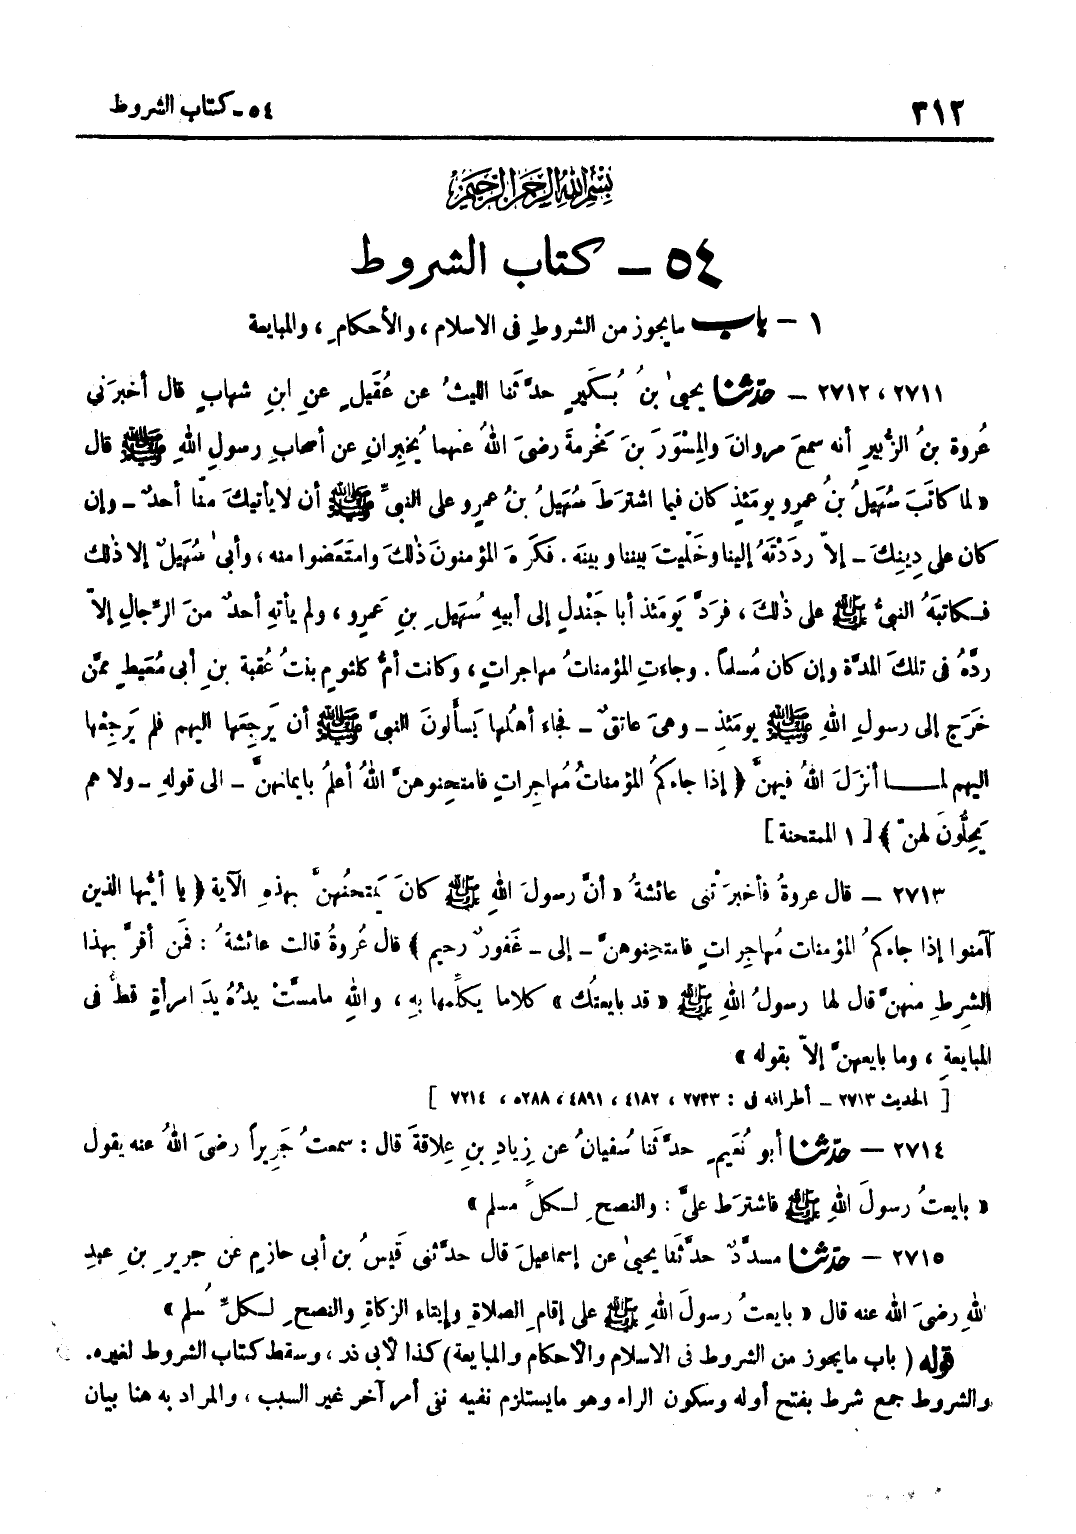 ٣١٢
٥٤ـ كتاب الشروط
بسم الله الرحمن الرحيم
٥٤ ـ كتاب الشروط
١ ـ باب مايجوز من الشروطِ فى الاسلام ، والأحكامِ ، والمبايعة
٢٧١١ ، ٢٧١٢ ـ حدّثنا يحيىٰ بنُ بُسكَيرٍ حدَّثَنا الليثُ عن عُقَيلٍ عنِ ابنِ شهابٍ قال أخبرَنى
عُروة بنُ الزُّبيرِ أنه سمعَ مروانَ والمِسْوَرَ بنَ مَخْرمةَ رضىَ اللهُ عنهما يُخبِرانِ عن أصحابِ رسولِ اللهِ ﷺ قال
« لما كاتَبَ سُهَيلُ بنُ عمرٍو يومَئذٍ كان فيما اشترَطَ سُهَيلُ بنُ عمرٍو على النبىِّ ﷺ أن لايأتيكَ منّا أحدٌ ـ وإن
كان على دِينِكَ ـ إلاّ ردَدْتَهُ إلينا وخَلّيتَ بيننا وبينَه . فكَرِهَ المؤمنونَ ذٰلكَ وامتَعَضوا منه ، وأبىٰ سُهَيلٌ إلا ذٰلك
فـكاتبَهُ النبىُّ ﷺ على ذٰلكَ ، فرَدَّ يَومَئذٍ أبا جَندلٍ إلى أبيهِ سُهَيلِ بنِ عَمرٍو ، ولم يأتهِ أحدٌ منَ الرِّجالِ إلاّ
ردَّهُ فى تلكَ المدّة وإن كان مُسلماً . وجاءتِ المؤمناتُ مهاجراتٍ ، وكانت أمُّ كلثومٍ بنتُ عُقبةَ بنِ أبى مُعَيطٍ ممَّن
خَرَج إلى رسولِ اللهِ ﷺ يومَئذٍ ـ وهىَ عاتقٌ ـ فجاء أهلُها يَسألونَ النبىَّ ﷺ أن يَرجِعَها اليهم فلم يَرجِعْها
اليهم لمـا أنزَلَ اللهُ فيهنَّ ﴿ إذا جاءكمُ المؤمناتُ مُهاجِراتٍ فامتحِنوهنَّ اللهُ أعلمُ بايمانهنَّ ـ الى قولهِ ـ ولا هم
يَحِلُّونَ لهنّ ﴾ [ ١ الممتحنة ]
٢٧١٣ ـ قال عروةُ فأخبرَتْنى عائشةُ « أنَّ رسولَ اللهِ ﷺ كانَ يَمتحنُهنَّ بهذهِ الآية ﴿ يا أيُّها الذين
آمنوا إذا جاءكمُ المؤمنات مُهاجِراتٍ فامتحِنوهنَّ ـ إلى ـ غَفورٌ رحيم ﴾ قال عُروةُ قالت عائشةُ : فمَن أقرَّ بهذا
الشرطِ منهنَّ قال لها رسولُ اللهِ ﷺ « قد بايعتُك » كلاما يكلِّمها بهِ ، واللهِ مامسَّتْ يدُهُ يدَ امرأةٍ قطُّ فى
المبايعةِ ، وما بايعهنَّ إلاّ بقوله »
[ الحديث ٢٧١٣ ـ أطرافه فى : ٢٧٣٣ ، ٤١٨٢ ، ٤٨٩١ ، ٥٢٨٨ ، ٧٢١٤ ]
٢٧١٤ ـ حدّثنا أبو نُعَيمٍ حدَّثَنا سُفيانُ عن زِيادِ بنِ عِلاقةَ قال : سمعتُ جَرِيراً رضىَ اللهُ عنه يقول
« بايعتُ رسولَ اللهِ ﷺ فاشترَط علىَّ : والنصحِ لـكلِّ مسلم »
٢٧١٥ ـ حدّثنا مسدَّدٌ حدَّثَنا يحيىٰ عن إسماعيلَ قال حدَّثنى قَيسُ بن أبى حازمٍ عن جريرِ بنِ عبدِ
اللهِ رضىَ الله عنه قال « بايعتُ رسولَ اللهِ ﷺ على إقامِ الصلاةِ وإيتاء الزكاةِ والنصحِ لـكلِّ مُسلم »
قوله ( باب مايجوز من الشروط فى الاسلام والأحكام والمبايعة ) كذا لأبى ذر ، وسقط كتاب الشروط لغيره .
والشروط جمع شرط بفتح أوله وسكون الراء وهو مايستلزم نفيه نفى أمر آخر غير السبب ، والمراد به هنا بيان